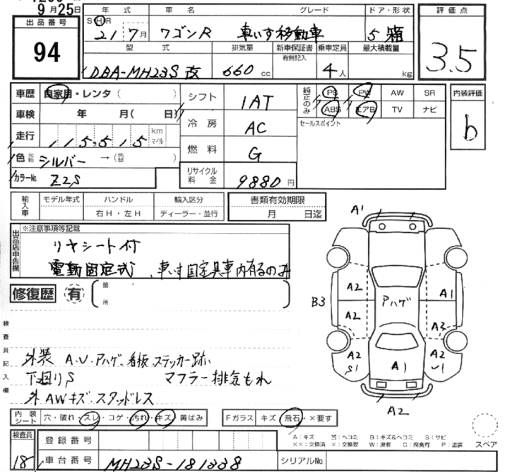 9月25日
出品番号
94
年式 車名 グレード ドア・形状
SH 21年 7月 ワゴンR 車いす移動車 5 箱
型式 排気量 新車保証書 有無記入 乗車定員 最大積載量
DBA-MH23S改 660cc 4人 kg
評価点
3.5
車歴 自家用・レンタ( )
車検 年 月( 日)
走行 115,515 km マイル
色 シルバー →( )
カラーNo. Z2S
シフト 1AT
冷房 AC
燃料 G
リサイクル料金 9880円
純正のみ PS PW AW SR
ABS エアB TV ナビ
セールスポイント
内装評価
b
輸入車 モデル年式 ハンドル 輸入区分
右H・左H ディーラー・並行
書類有効期限
月 日迄
※注意事項等記載
リヤシート付
電動固定式、車いす固定具車内有るのみ
修復歴 有 箇所
検査員記入欄
外装 A.U.Pハゲ、看板ステッカー跡
下廻りS マフラー排気もれ
外AWキズ スタッドレス
A1
B3 A2 Pハゲ A1
A2 A2
A2 S1 A1 U1
A2
スペア
内装シート 穴・破れ・スレ・コゲ・汚れ・キズ・黄ばみ
Fガラス キズ・飛石・×要す
検査員 18
登録番号
車台番号 MH23S-181338
シリアルNo.